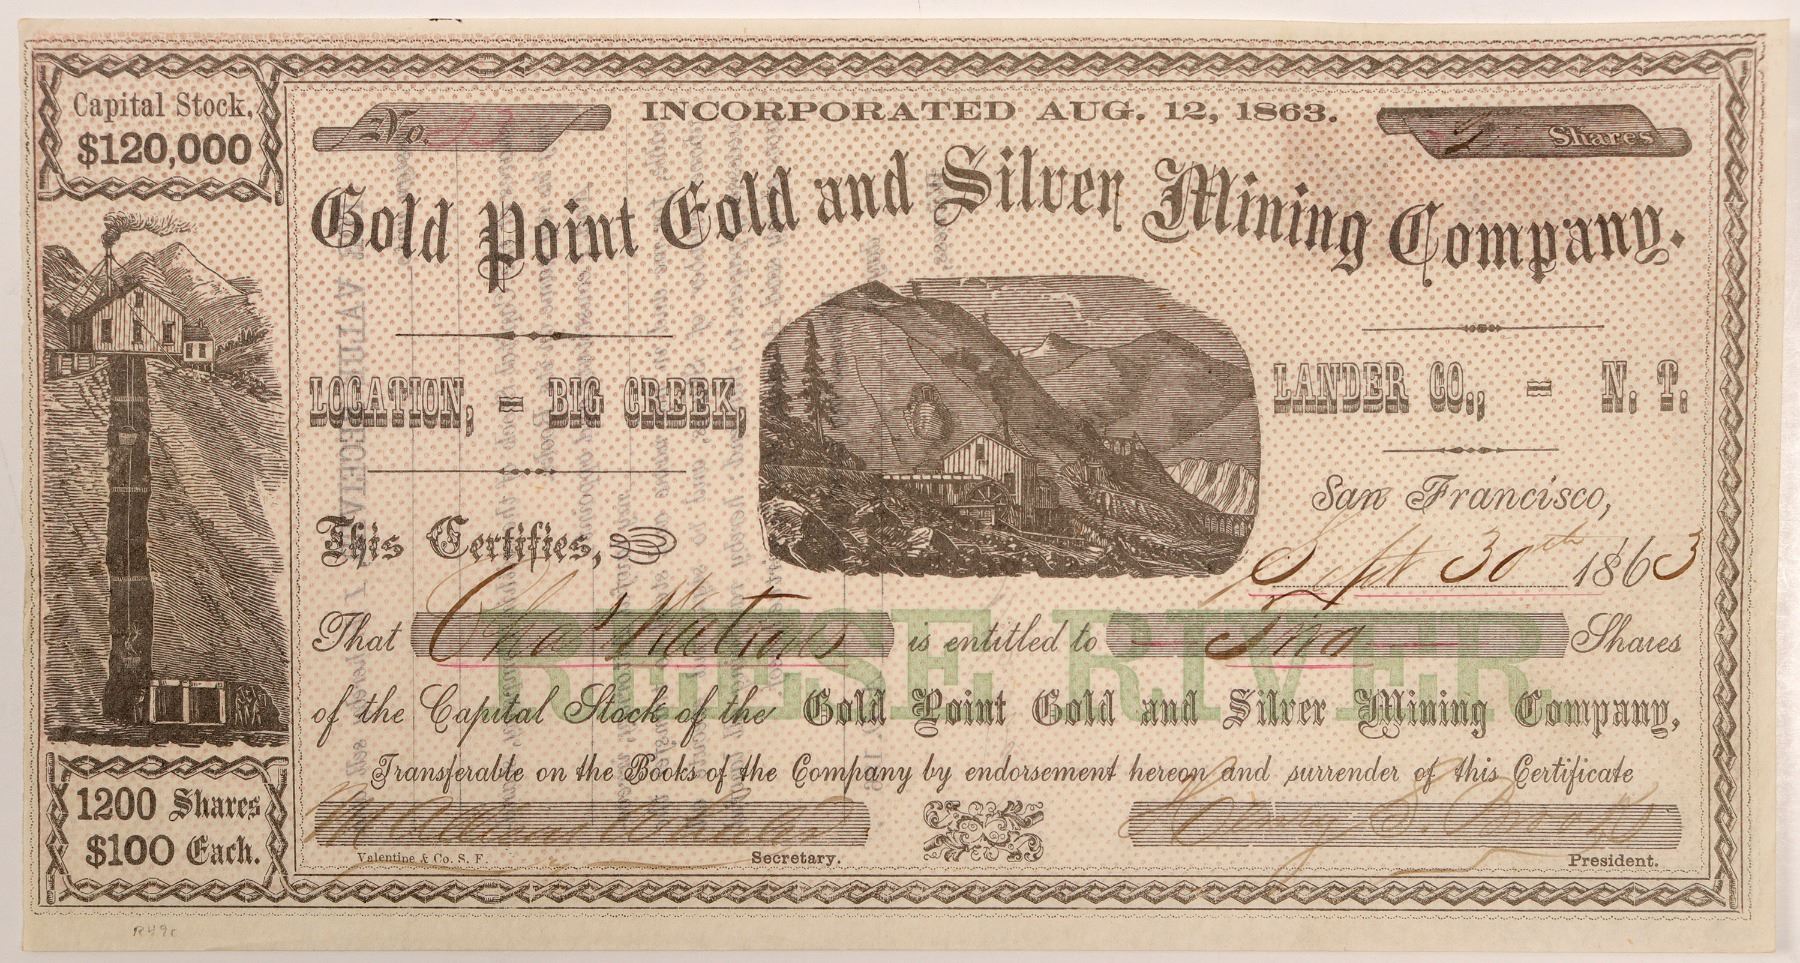 Capital Stock,
$120,000
No.
INCORPORATED AUG. 12, 1863.
Shares
Gold Point Gold and Silver Mining Company.
LOCATION, = BIG CREEK,
LANDER CO., = N. T.
San Francisco,
This Certifies,
Sept 30th 1863
REESE RIVER
That Chas Watson is entitled to Two Shares
of the Capital Stock of the Gold Point Gold and Silver Mining Company,
Transferable on the Books of the Company by endorsement hereon and surrender of this Certificate
1200 Shares
$100 Each.
Valentine & Co. S. F.
Secretary.
President.
R49c